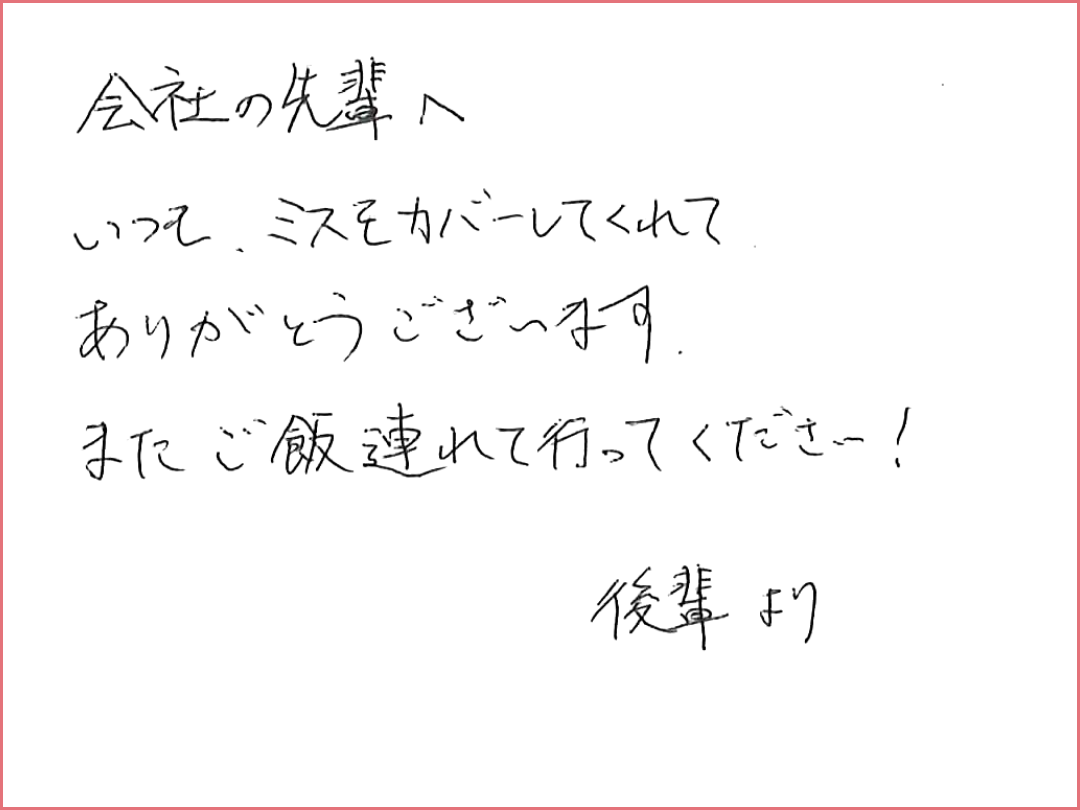 会社の先輩へ
いつも、ミスをカバーしてくれて
ありがとうございます。
またご飯連れて行ってください!
後輩より